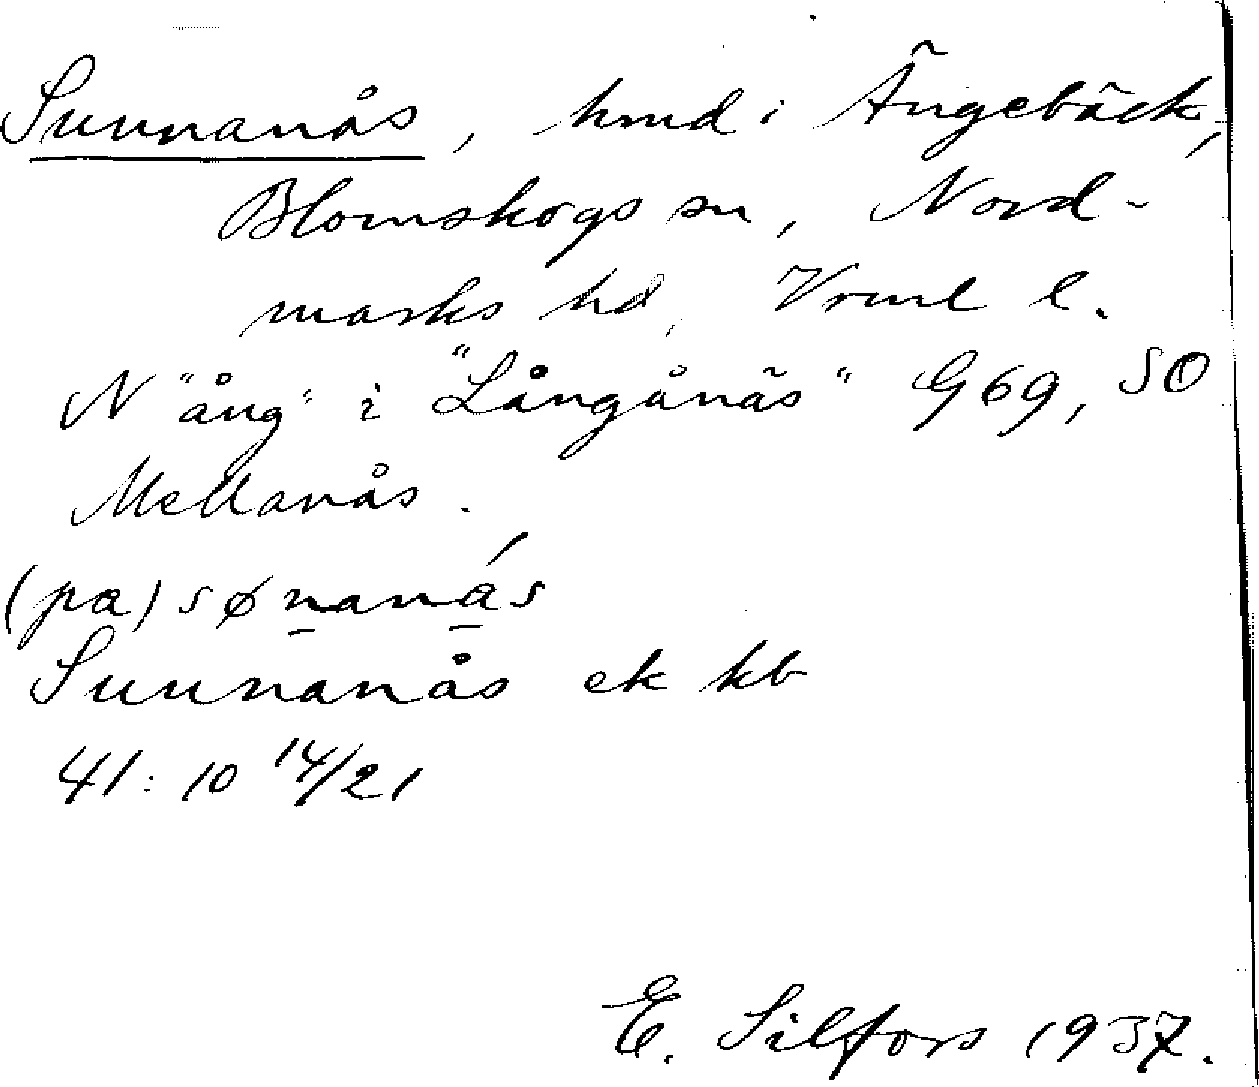 Sunnanås, hmd i Ängebäck,
Blomskogs sn, Nord-
marks hd, Vrml l.
N "ång" i "Långånäs" G69, SO
Mellanås.
(pa) sønanás
Sunnanås ek kb
41:10 14/21
E. Silfors 1937.